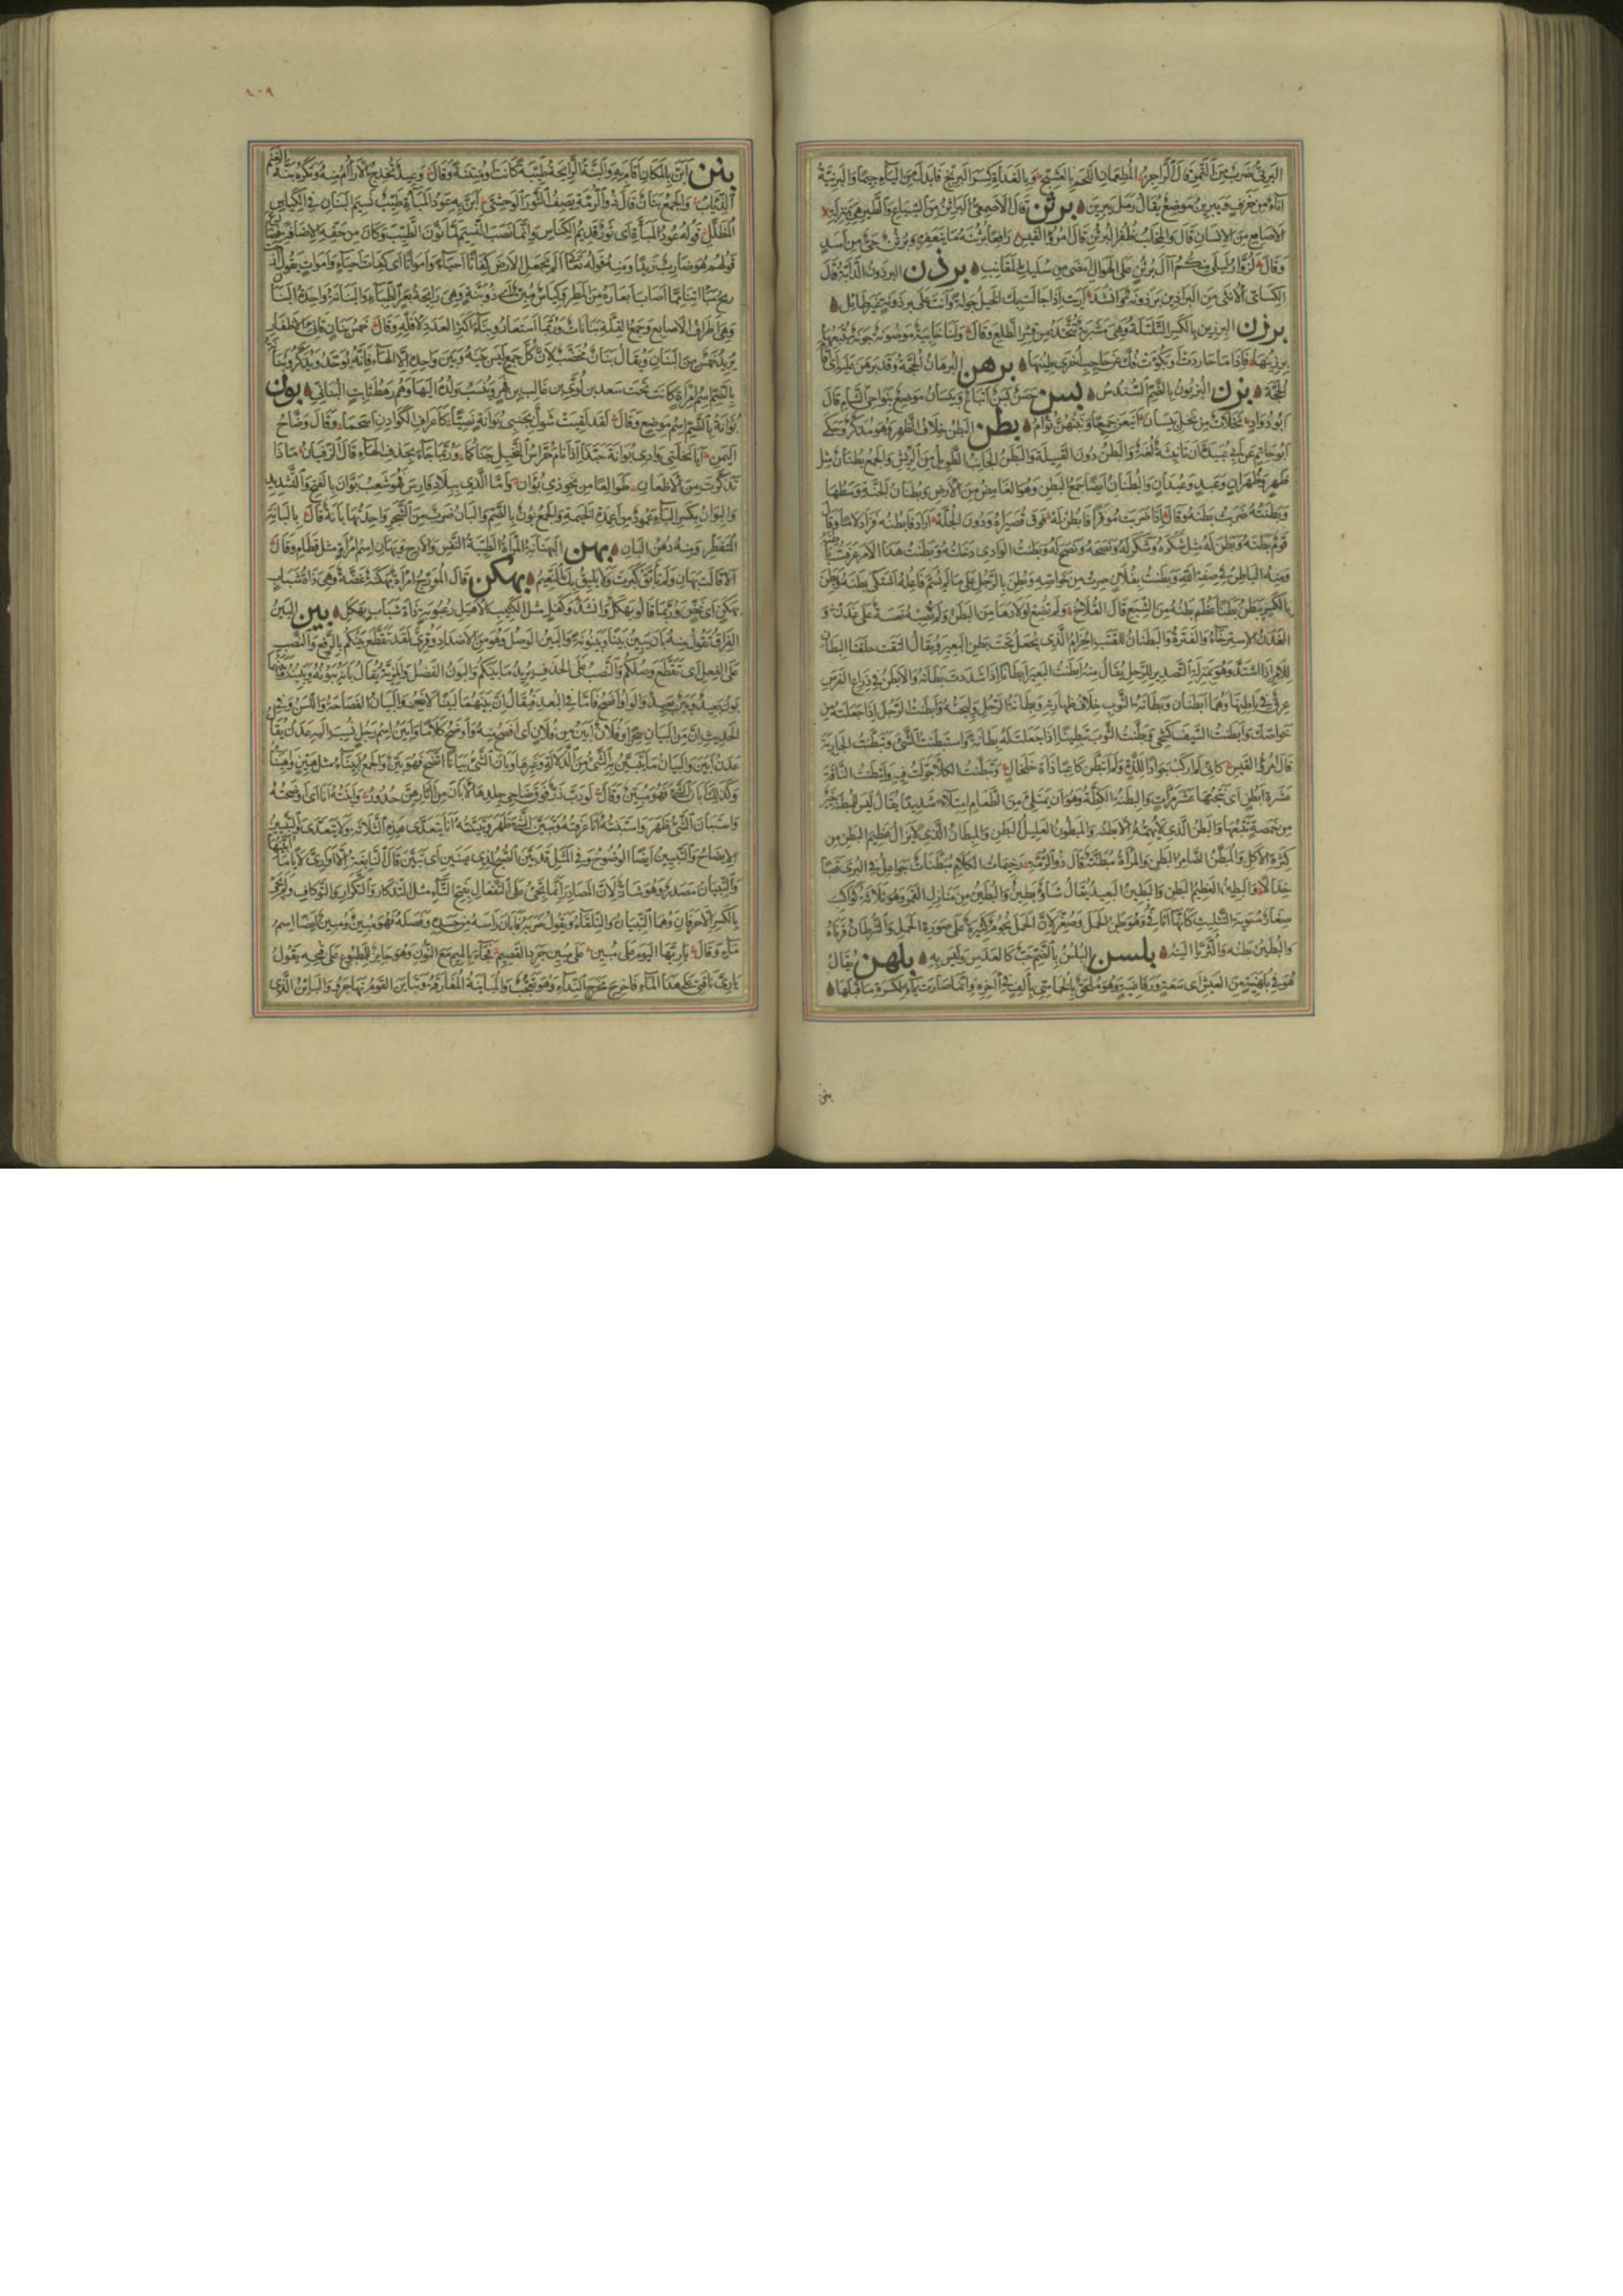 البرني ضرب من التمر قال الراجز المطعمان اللحم بالعشج وبالغداة كسر البرنج فابدل من الياء جيما والبرنية
اناء من خزف ويبرين موضع يقال رمل يبرين برثن قال الاصمعي البراثن من السباع والطير هي بمنزلة
الاصابع من الانسان قال والمخلب ظفر البرثن قال امرؤ القيس رافعا برثنه ما ينعفر وبرثن حي من اسد
وقال لزوار ليلى منكم آل برثن على الهول امضى من سليك المقانب برذن البرذون الدابة قال
الكسائي الانثى من البراذين برذونة وانشد اريت اذا جالت بك الخيل جولة وانت على برذونة غير طائل
برزن البرزين بالكسر التلتلة وهي مشربة تتخذ من قشر الطلع وقال ولنا خابية موضونة جونة يتبعها
برزينها فاذا ما حاردت او بكؤت فك عن حاجب اخرى طينها برهن البرهان الحجة وقد برهن عليه اى اقام
الحجة بزن البزيون بالضم السندس بسن حسن بسن اتباع وبيسان موضع بنواحي الشام قال
ابو دواد نخلات من نخل بيسان اينعن جميعا ونبتهن تؤام بطن البطن خلاف الظهر وهو مذكر وحكى
ابو حاتم عن ابي عبيدة ان تانيثه لغة والبطن دون القبيلة والبطن الجانب الطويل من الريش والجمع بطنان مثل
ظهر وظهران وعبد وعبدان والبطنان ايضا جمع البطن وهو الغامض من الارض وبطنان الجنة وسطها
وبطنته ضربت بطنه وقال اذا ضربت موقرا فابطن له فوق قصيراه ودون الجله اراد فابطنه فزاد لاما وقال
قوم بطنه وبطن له مثل شكره وشكر له ونصحه ونصح له وبطنت الوادى دخلته وبطنت هذا الامر عرفت باطنه
ومنه الباطن في صفة الله وبطنت بفلان صرت من خواصه وبطن بالرجل على ما لم يسم فاعله اشتكى بطنه وبطن
بالكسر يبطن بطنا عظم بطنه من الشبع قال القلاخ ولم تضع اولادها من البطن ولم تصبه نعسة على غدن و
الغدن الاسترخاء والفترة والبطان للقتب الحزام الذى يجعل تحت بطن البعير ويقال التقت حلقتا البطان
للامر اذا اشتد وهو بمنزلة التصدير للرحل يقال منه ابطنت البعير ابطانا اذا شددت بطانه والابطن في ذراع الفرس
عرق في باطنها وهما ابطنان وبطانة الثوب خلاف ظهارته وبطانة الرجل وليجته وابطنت الرجل اذا جعلته من
خواصك وابطنت السيف كشحي وبطنت الثوب تبطينا اذا جعلت له بطانة واستبطنت الشئ وتبطنت الجارية
قال امرؤ القيس كاني لم اركب جوادا للذة ولم اتبطن كاعبا ذات خلخال وتبطنت الكلا جولت فيه وابتطنت الناقة
عشرة ابطن اى نتجتها عشر مرات والبطنة الكظة وهو ان يمتلئ من الطعام امتلاء شديدا يقال ليس للبطنة خير
من خمصة تتبعها والبطن الذى لا يهمه الا بطنه والمبطون العليل البطن والمبطان الذى لا يزال عظيم البطن من
كثرة الاكل والمبطن الضامر البطن والمراة مبطنة قال ذو الرمة رخيمات الكلام مبطنات جواعل في البرى قصبا
خدالا والبطين العظيم البطن والبطين البعيد يقال شأو بطين والبطين من منازل القمر وهو ثلاثة كواكب
صغار مستوية التثليث كانها اثافي وهو بطن الحمل وصغر لان الحمل نجوم كثيرة على صورة الحمل والشرطان قرناه
والبطين بطنه والثريا اليته بلسن البلسن بالضم حب كالعدس وليس به بلهن يقال
هو في بلهنية من العيش اى سعة ورفاهية وهو ملحق بالخماسي بالف في آخره وانما صارت ياء لكسرة ما قبلها
بنن
٤٠٩
بنن ابن بالمكان اقام به والبنة الرائحة طيبة كانت او منتنة وقال وعيد تخدج الارآم منه وتكره بنة الغنم
الذئاب والجمع بنان قال ذو الرمة يصف الثور الوحشي ابن به عود المباءة طيب نسيم البنان في الكناس
المظلل قوله عود المباءة اى ثور قديم الكناس وانما نصب النسيم لما نون الطيب وكان من حقه الاضافة فضارع
قولهم هو ضارب زيدا ومنه قوله تعالى الم نجعل الارض كفاتا احياء وامواتا اى كفات احياء واموات يقول ان
ريح مما اصاب ابعاره من المطر وكناس مبن اى ذو بنة وهي رائحة بعر الظباء والبنانة واحدة البنان
وهي اطراف الاصابع وجمع القلة بنانات وربما استعاروا بناء اكثر العدد لاقله وقال خمس بنان قانئ الاظفار
يريد خمسا من البنان ويقال بنان مخضب لان كل جمع ليس بينه وبين واحده الا الهاء فانه يوحد ويذكر وبنانة
بالضم اسم امراة كانت تحت سعد بن لؤى بن غالب بن فهر وينسب ولده اليها وهم رهط ثابت البناني بون
بوانة بالضم اسم موضع وقال لقد لقيت شول بجنبى بوانة نصيا كاعراف الكوادن اسحما وقال وضاح
اليمن ايا نخلتى وادى بوانة حبذا اذا نام حراس النخيل جناكما وربما جاء بحذف الهاء قال الزفيان ماذا
تذكرت من الاظعان طوالعا من نحو ذى بوان واما الذى ببلاد فارس فهو شعب بوان بالفتح والتشديد
والبوان بكسر الباء عمود من اعمدة الخيمة والجمع بون بالضم والبان ضرب من الشجر واحدتها بانة قال بالبانة
المنفطر ومنه دهن البان بهن البهنانة المراة الطيبة النفس والارج وبهان اسم امراة مثل قطام وقال
الا قالت بهان ولم تابق كبرت ولا يليق بك النعيم بهكن قال المؤرج امراة بهكنة غضة وهي ذات شباب
بهكن اى غض وربما قالوا بهكل وانشد وكفل مثل الكثيب الاهيل رعبوبة ذات شباب بهكل بين البين
الفراق تقول منه بان يبين بينا وبينونة والبين الوصل وهو من الاضداد وقرئ لقد تقطع بينكم بالرفع والنصب
على الفعل اى تقطع وصلكم والنصب على الحذف يريد ما بينكم والبون الفضل والمزية يقال بانه يبونه ويبينه وبينهما
بون بعيد وبين بعيد والواو افصح فاما في البعد فيقال ان بينهما لبينا لا غير والبيان الفصاحة واللسن وفي
الحديث ان من البيان سحرا وفلان ابين من فلان اى افصح منه واوضح كلاما وابين اسم رجل نسب اليه عدن يقال
عدن ابين والبيان ما يتبين به الشئ من الدلالة وغيرها وبان الشئ بيانا اتضح فهو بين والجمع ابيناء مثل هين واهيناء
وكذلك ابان الشئ فهو مبين وقال لو دب ذر فوق ضاحي جلدها لابان من آثارهن حدور وابنته انا اى اوضحته
واستبان الشئ ظهر واستبنته انا عرفته وتبين الشئ ظهر وتبينته انا يتعدى هذه الثلاثة ولا يتعدى والتبيين
الايضاح والتبيين ايضا الوضوح وفي المثل قد بين الصبح لذى عينين اى تبين قال النابغة الا الاوارى لأيا ما ابينها
والتبيان مصدر وهو شاذ لان المصادر انما تجئ على التفعال بفتح التاء مثل التذكار والتكرار والتوكاف ولم يجئ
بالكسر الا حرفان وهما التبيان والتلقاء وتقول ضربه فابان راسه من جسده وفصله فهو مبين ومبين ايضا اسم
ماء وقال يا ريها اليوم على مبين على مبين جرد القصيم فجاء بالميم مع النون وهو جائز للمطبوع على قبحه يقول
يا رى ناقتي على هذا الماء فاخرج مخرج النداء وهو تعجب والمباينة المفارقة وتباين القوم تهاجروا والبائن الذى